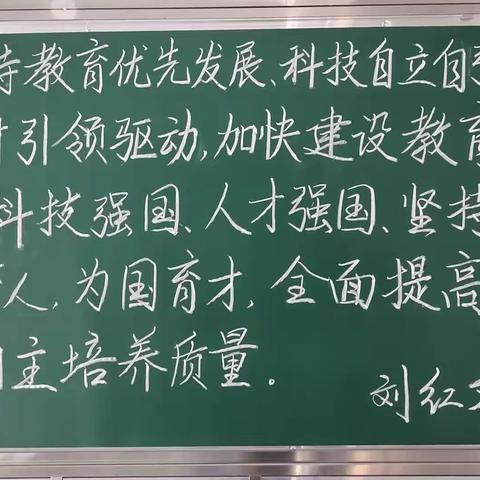 持教育优先发展、科技自立自强
才引领驱动,加快建设教育
科技强国、人才强国、坚持
人,为国育才,全面提高
自主培养质量。
刘红